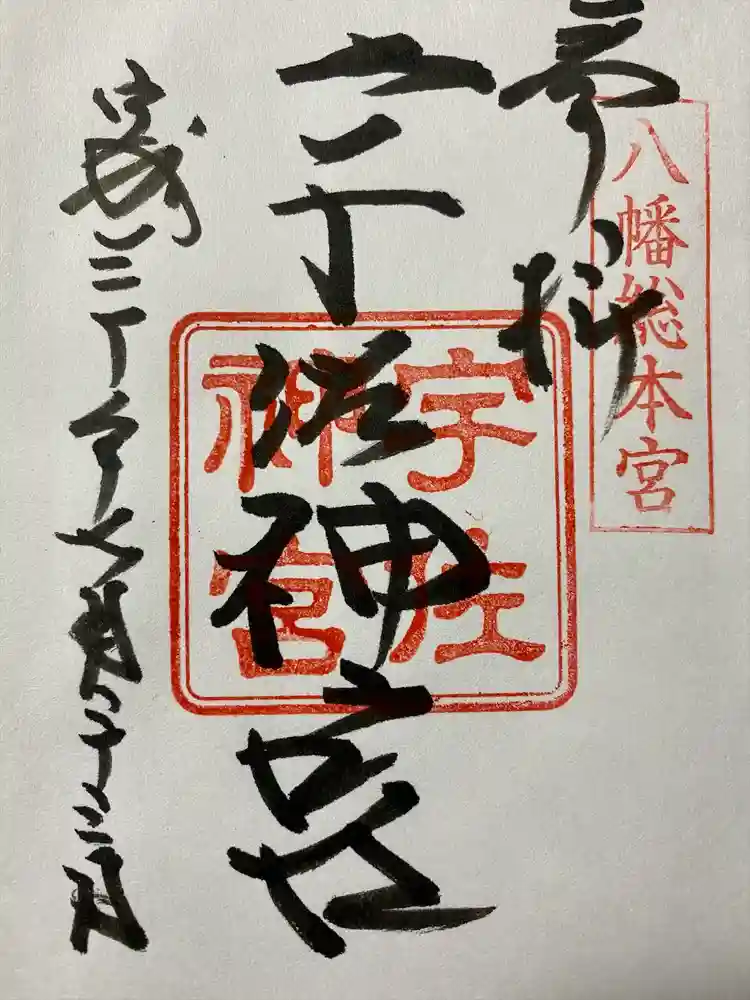 八幡総本宮
奉拝
宇佐神宮
宇佐
神宮
平成三十年七月十二日